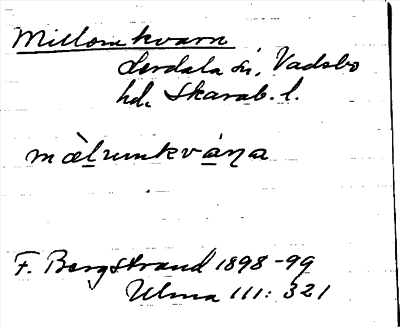 Mellomkvarn
Lerdala sn, Vadsbo
hd. Skarab. l.
mæ̀lumkváɳa
F. Bergstrand 1898-99
Ulma 111: 321